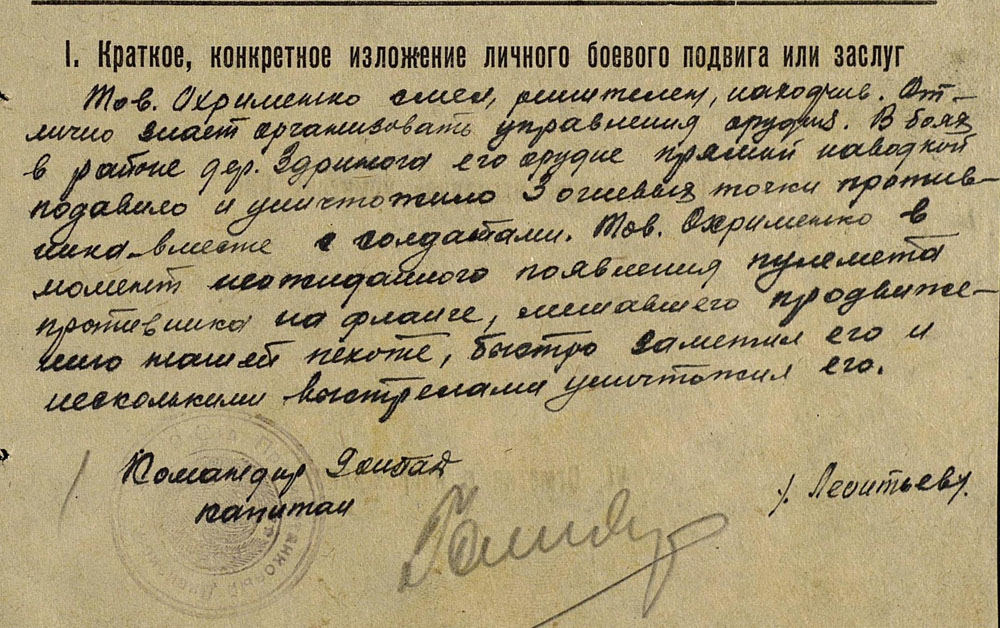 I. Краткое, конкретное изложение личного боевого подвига или заслуг
Тов. Охрименко смел, решителен, находчив. От-
лично знает организовать управления орудия. В боях
в районе дер. Здринога его орудие прямой наводкой
подавило и уничтожило 3 огневых точки против-
ника вместе с солдатами. Тов. Охрименко в
момент неожиданного появления пулемета
противника на фланге, мешавшего продвиже-
нию нашей пехоте, быстро заметил его и
несколькими выстрелами уничтожил его.
Командир
капитан
/. Леонтьев/.